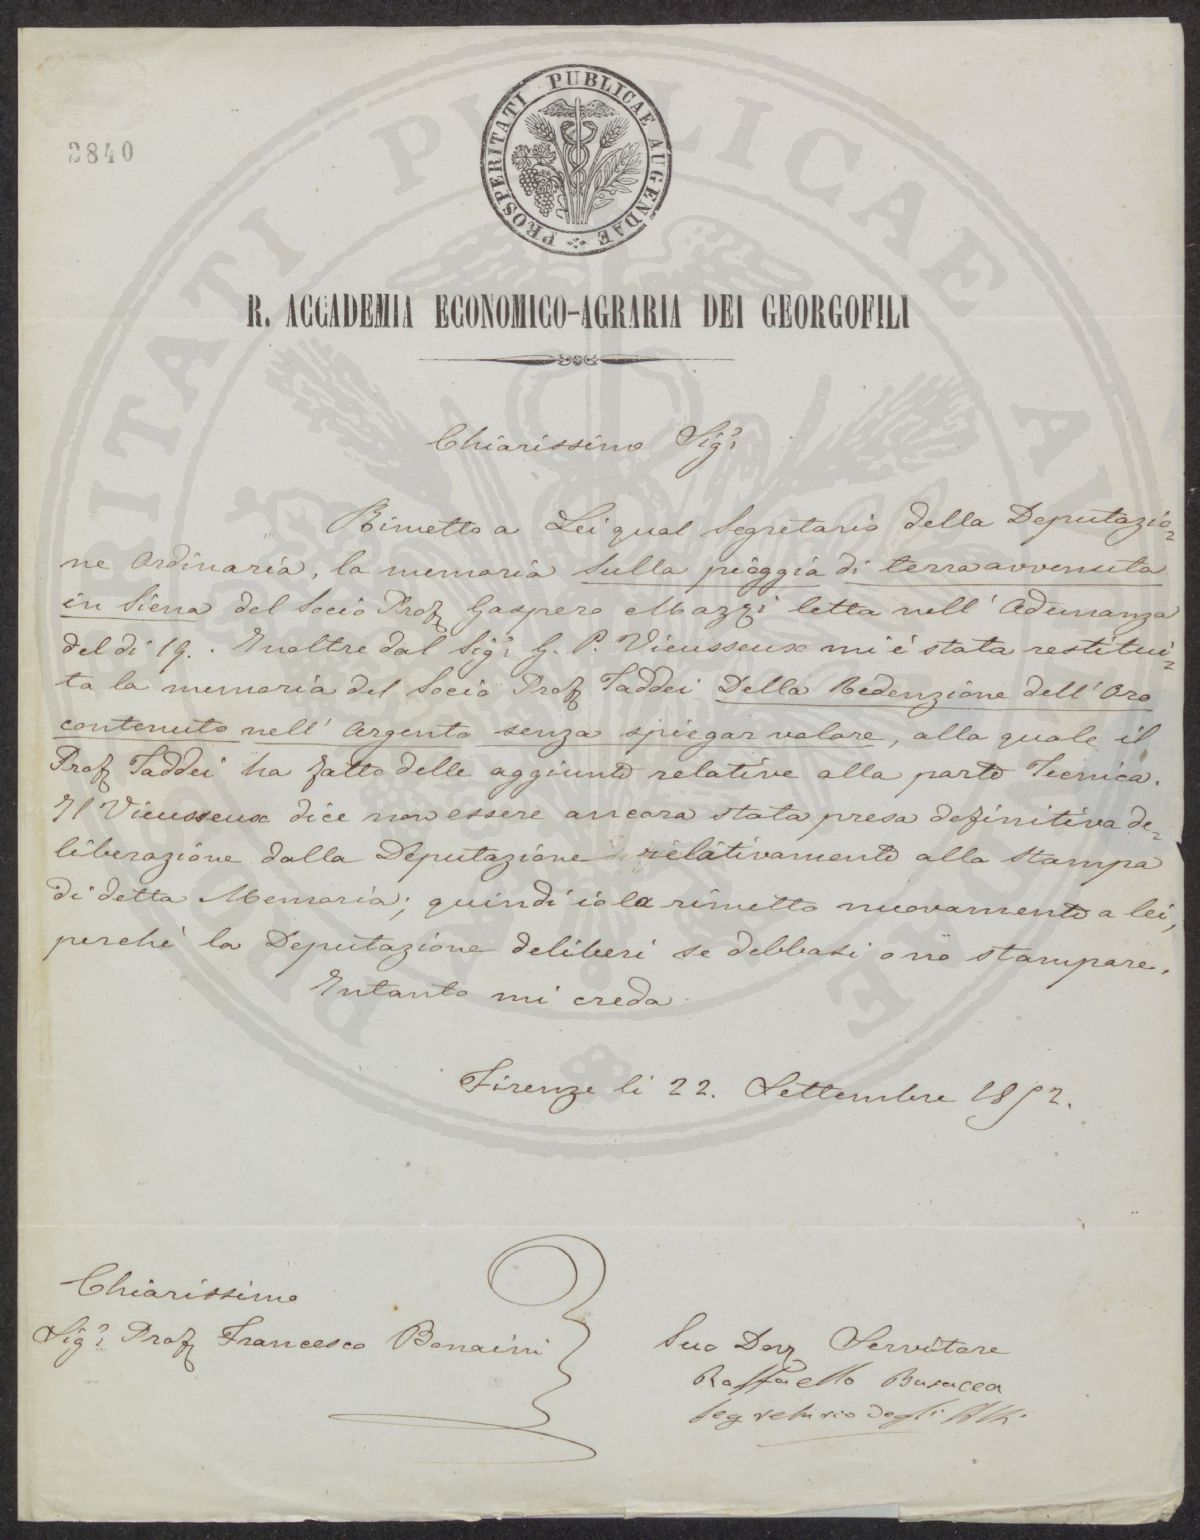 2840
PROSPERITATI PUBLICAE AUGENDAE
R. ACCADEMIA ECONOMICO-AGRARIA DEI GEORGOFILI
Chiarissimo Sigr
Rimetto a Lei qual Segretario della Deputazio=
ne Ordinaria, la memoria sulla pioggia di terra avvenuta
in Siena del Socio Prof Gaspero Mazzi letta nell' Adunanza
del di 19. Inoltre dal Sigr G. P. Vieusseux mi é stata restitui=
ta la memoria del Socio Prof Taddei Della Redenzione dell' Oro
contenuto nell' Argento senza spiegar valore, alla quale il
Prof Taddei ha fatto delle aggiunte relative alla parte Tecnica.
Il Vieusseux dice non essere ancora stata presa definitiva de=
liberazione dalla Deputazione relativamente alla stampa
di detta Memoria; quindi io la rimetto nuovamente a lei,
perchè la Deputazione deliberi se debbasi o nò stampare.
Intanto mi creda
Firenze li 22. Settembre 1852.
Chiarissimo
Sigr Prof Francesco Bonaini
Suo Dev Servitore
Raffaello Busacca
Segretario degli Atti